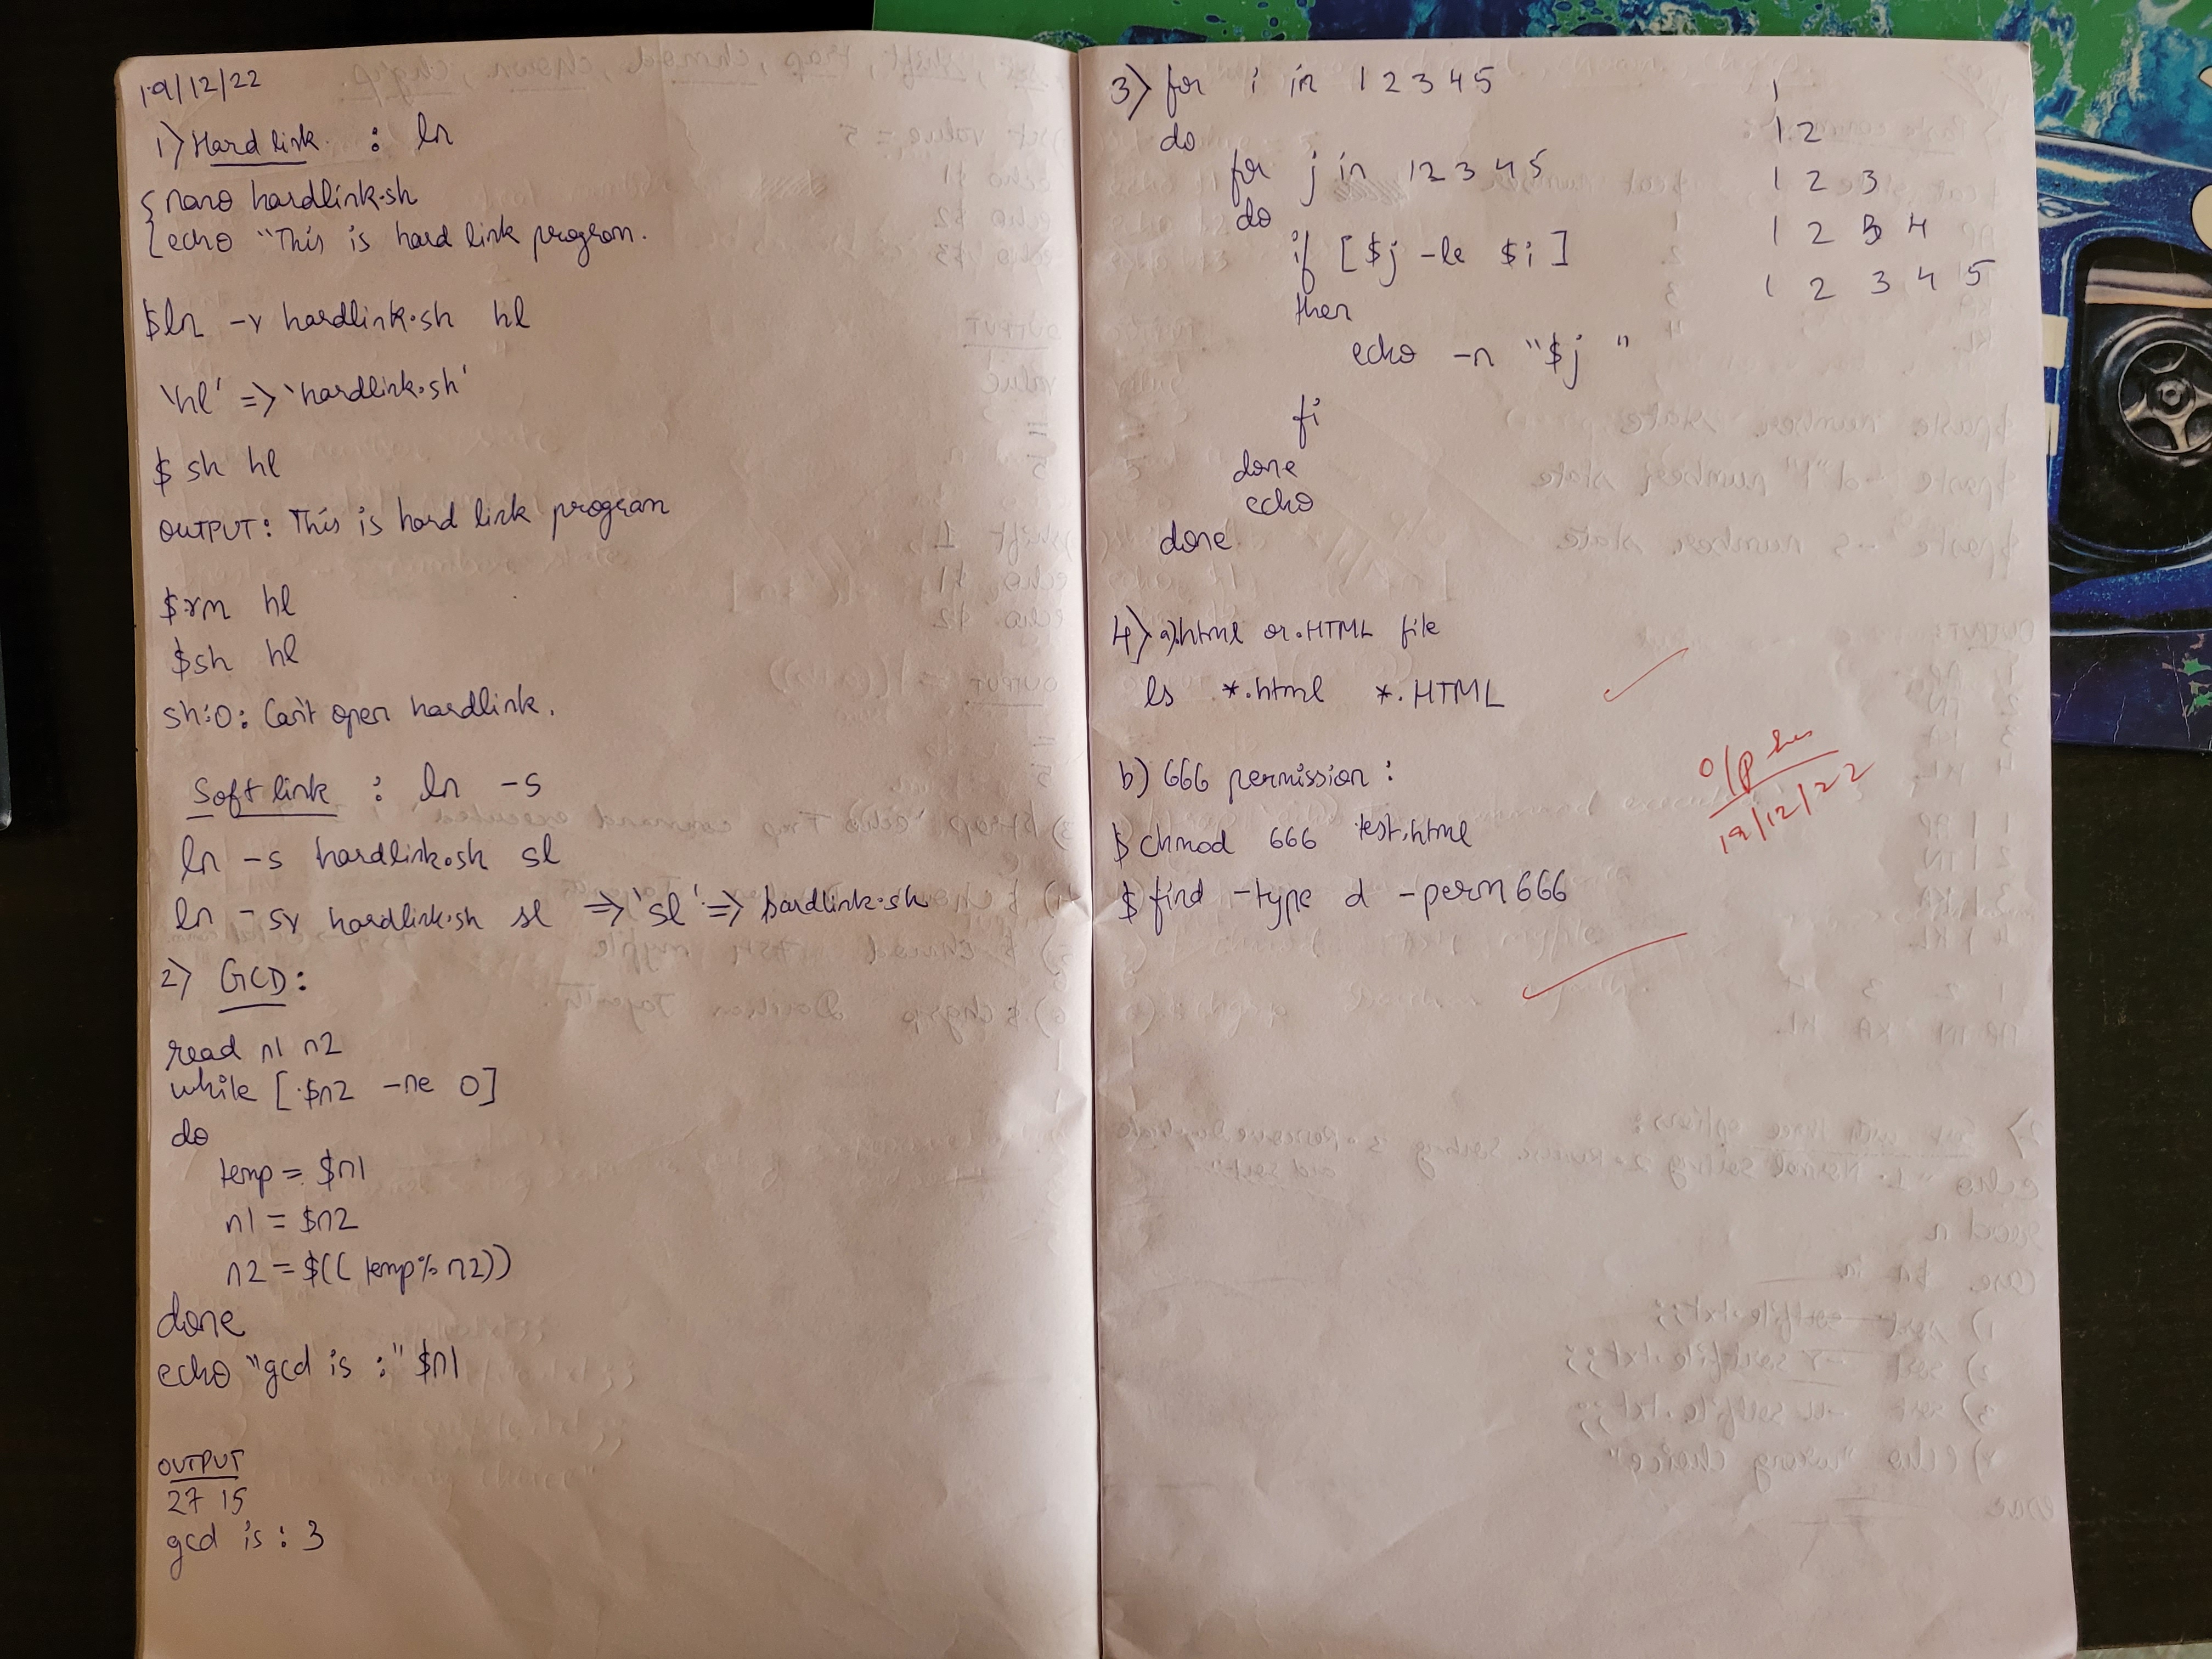 19/12/22
1) Hard link : ln
{nano hardlink.sh
{echo "This is hard link program.
$ln -v hardlink.sh hl
'hl' => 'hardlink.sh'
$ sh hl
OUTPUT: This is hard link program
$rm hl
$sh hl
sh:0: Can't open hardlink.
Soft link : ln -s
ln -s hardlink.sh sl
ln -sv hardlink.sh sl => 'sl' => hardlink.sh
2) GCD:
read n1 n2
while [ $n2 -ne 0]
do
temp = $n1
n1 = $n2
n2 = $(( temp% n2))
done
echo "gcd is :" $n1
OUTPUT
27 15
gcd is : 3
3) for i in 1 2 3 4 5
do
for j in 1 2 3 4 5
do
if [$j -le $i]
then
echo -n "$j "
fi
done
echo
done
1
12
1 2 3
1 2 3 4
1 2 3 4 5
4) a) .html or .HTML file
ls *.html *.HTML
b) 666 permission :
$ chmod 666 test.html
$ find -type d -perm 666
O/P
19/12/22